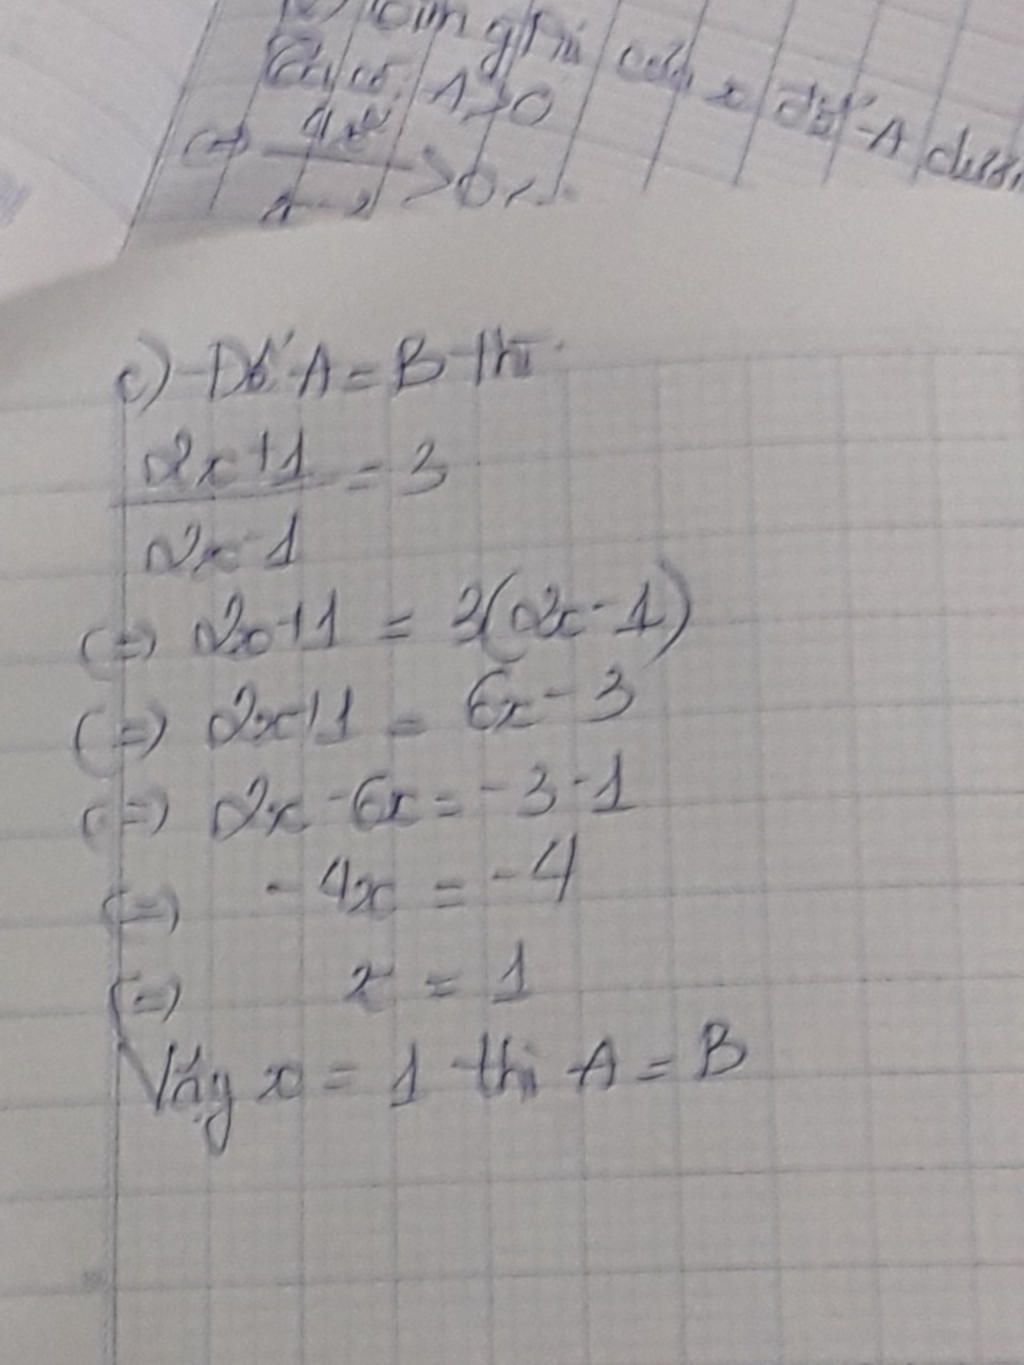 Tìm giá trị của x để A dươn
Ta có: A > 0
(=) 4x² / x - 2 > 0
c) Để A = B thì
2x+1 / 2x-1 = 3
(=) 2x+1 = 3(2x-1)
(=) 2x+1 = 6x-3
(=) 2x-6x = -3-1
(=) -4x = -4
(=) x = 1
Vậy x = 1 thì A = B